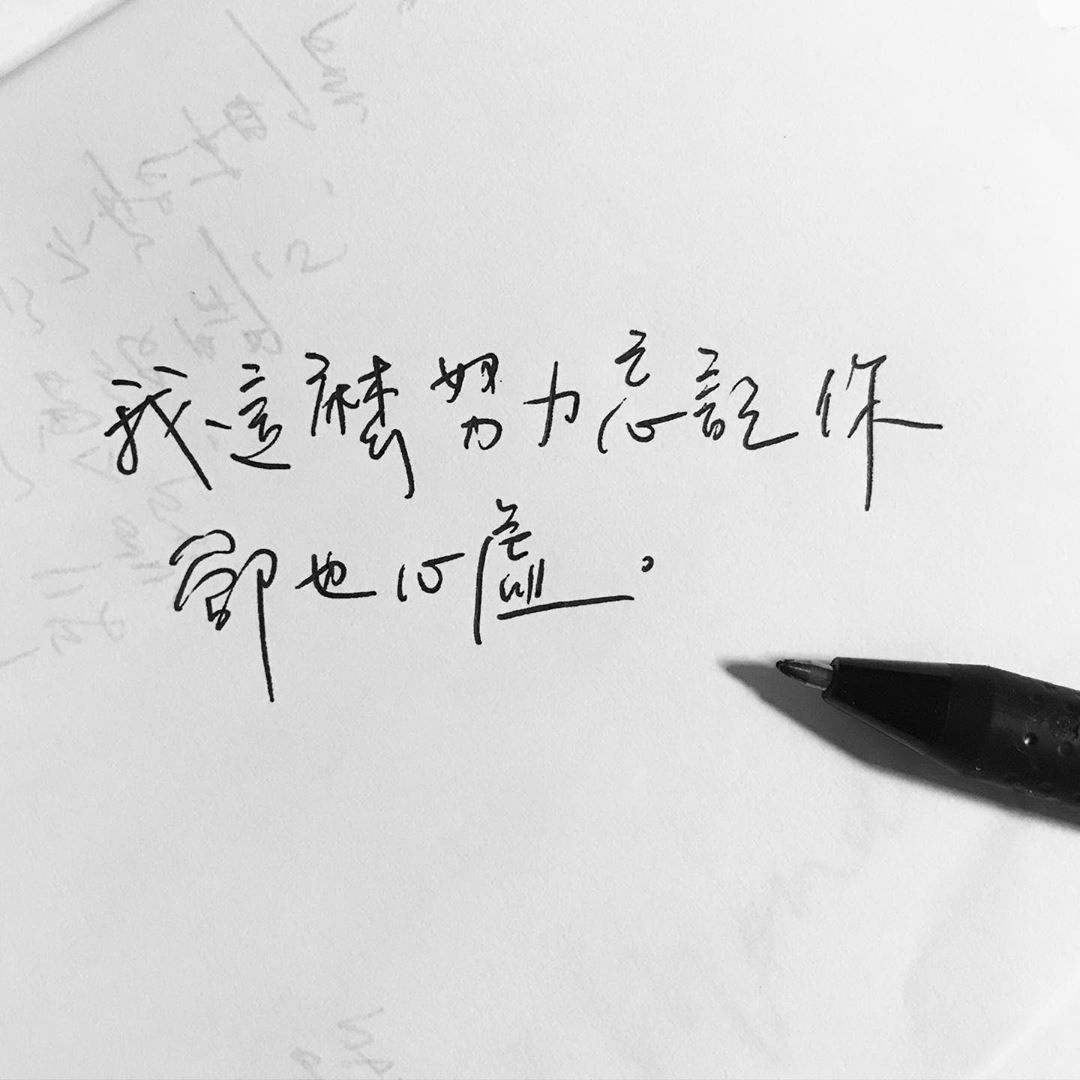 我這麼努力忘記你
卻也心虛。